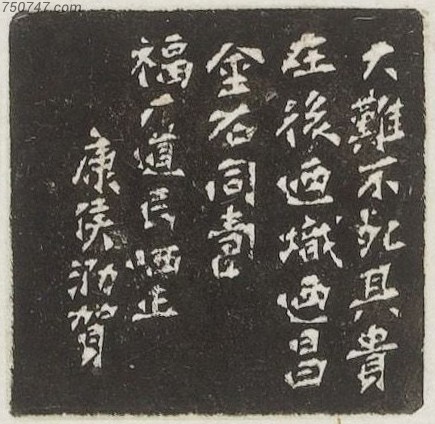 750747.com
大難不死具貴
在後迺熾迺昌
金石同壽
福厂道兄哂正
康侯泐賀